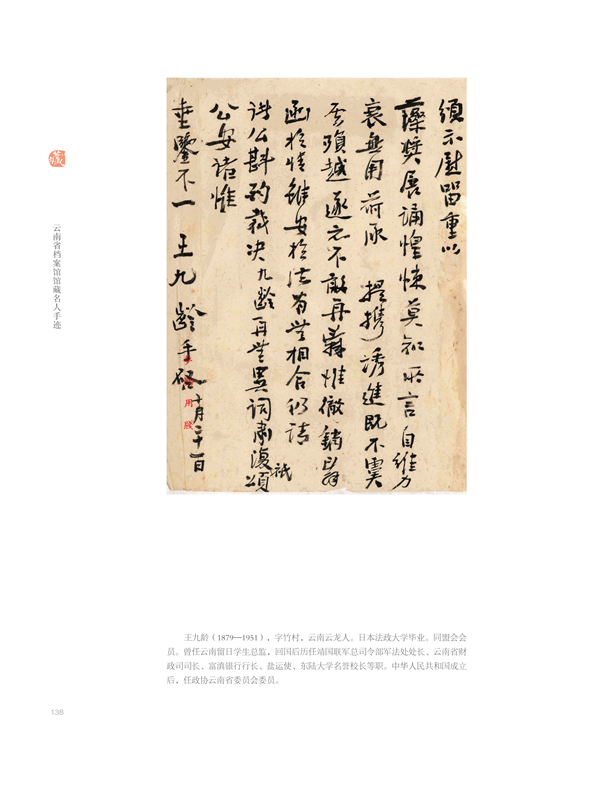 示慰留重以
藻奬展誦惶悚莫知所言自維力
衰無用荷承 提攜誘進既不
殞越遂亦不敢再辭惟徹銷
函於情雖安於法有無相合仍請
公斟酌裁决九齡再無異詞肅復頌
祇
公安诸惟
垂鑒不一 王九齡手啟 十月二十一日
藏
云南省档案馆馆藏名人手迹
王九龄（1879—1951），字竹村，云南云龙人。日本法政大学毕业。同盟会会
员。曾任云南留日学生总监，回国后历任靖国联军总司令部军法处处长、云南省财
政司司长、富滇银行行长、盐运使、东陆大学名誉校长等职。中华人民共和国成立
后，任政协云南省委员会委员。
138